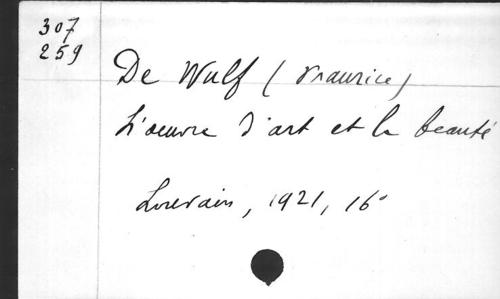 307
259
De Wulf (Maurice)
L'oeuvre d'art et la beauté
Louvain, 1921, 16°